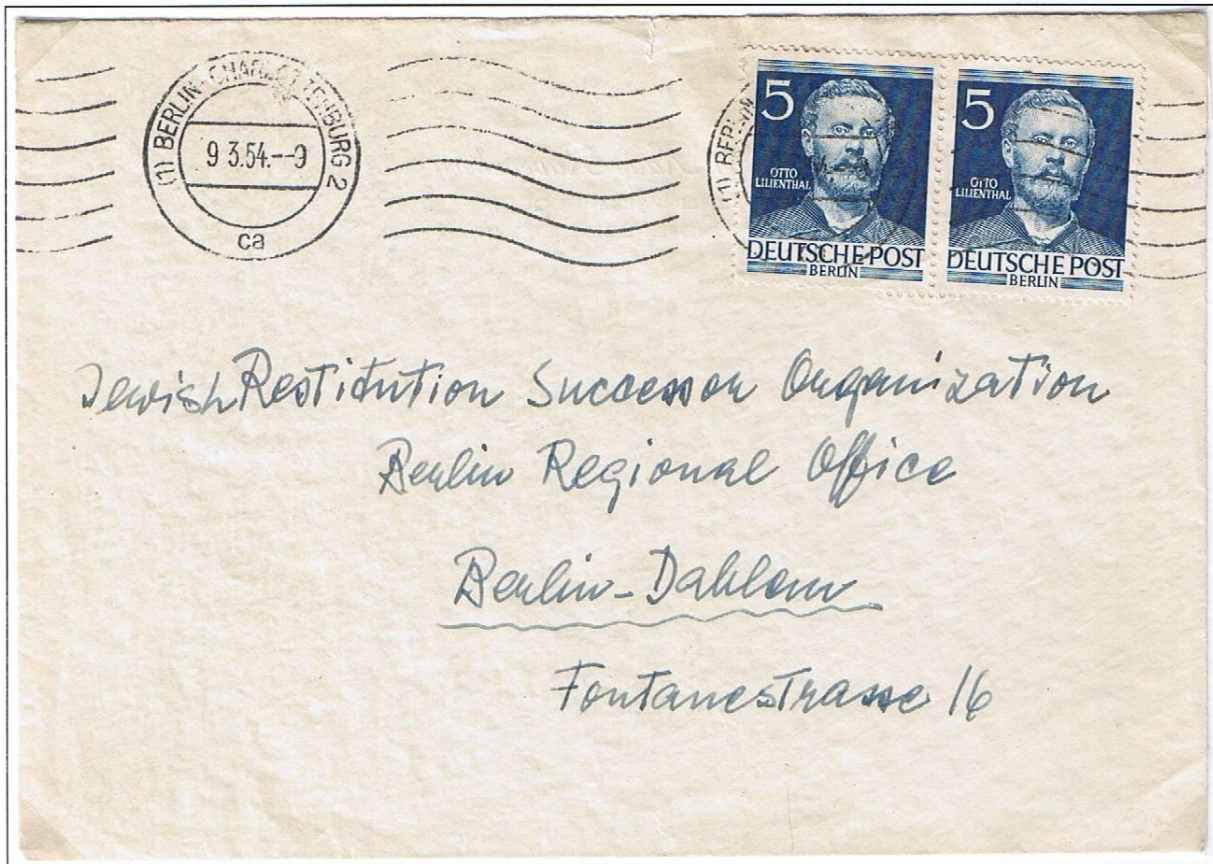 (1) BERLIN-CHARLOTTENBURG 2
9 3.54.--9
ca
(1) BERLIN
5
OTTO
LILIENTHAL
DEUTSCHE POST
BERLIN
5
OTTO
LILIENTHAL
DEUTSCHE POST
BERLIN
Jewish Restitution Successor Organization
Berlin Regional Office
Berlin-Dahlem
Fontanestrasse 16